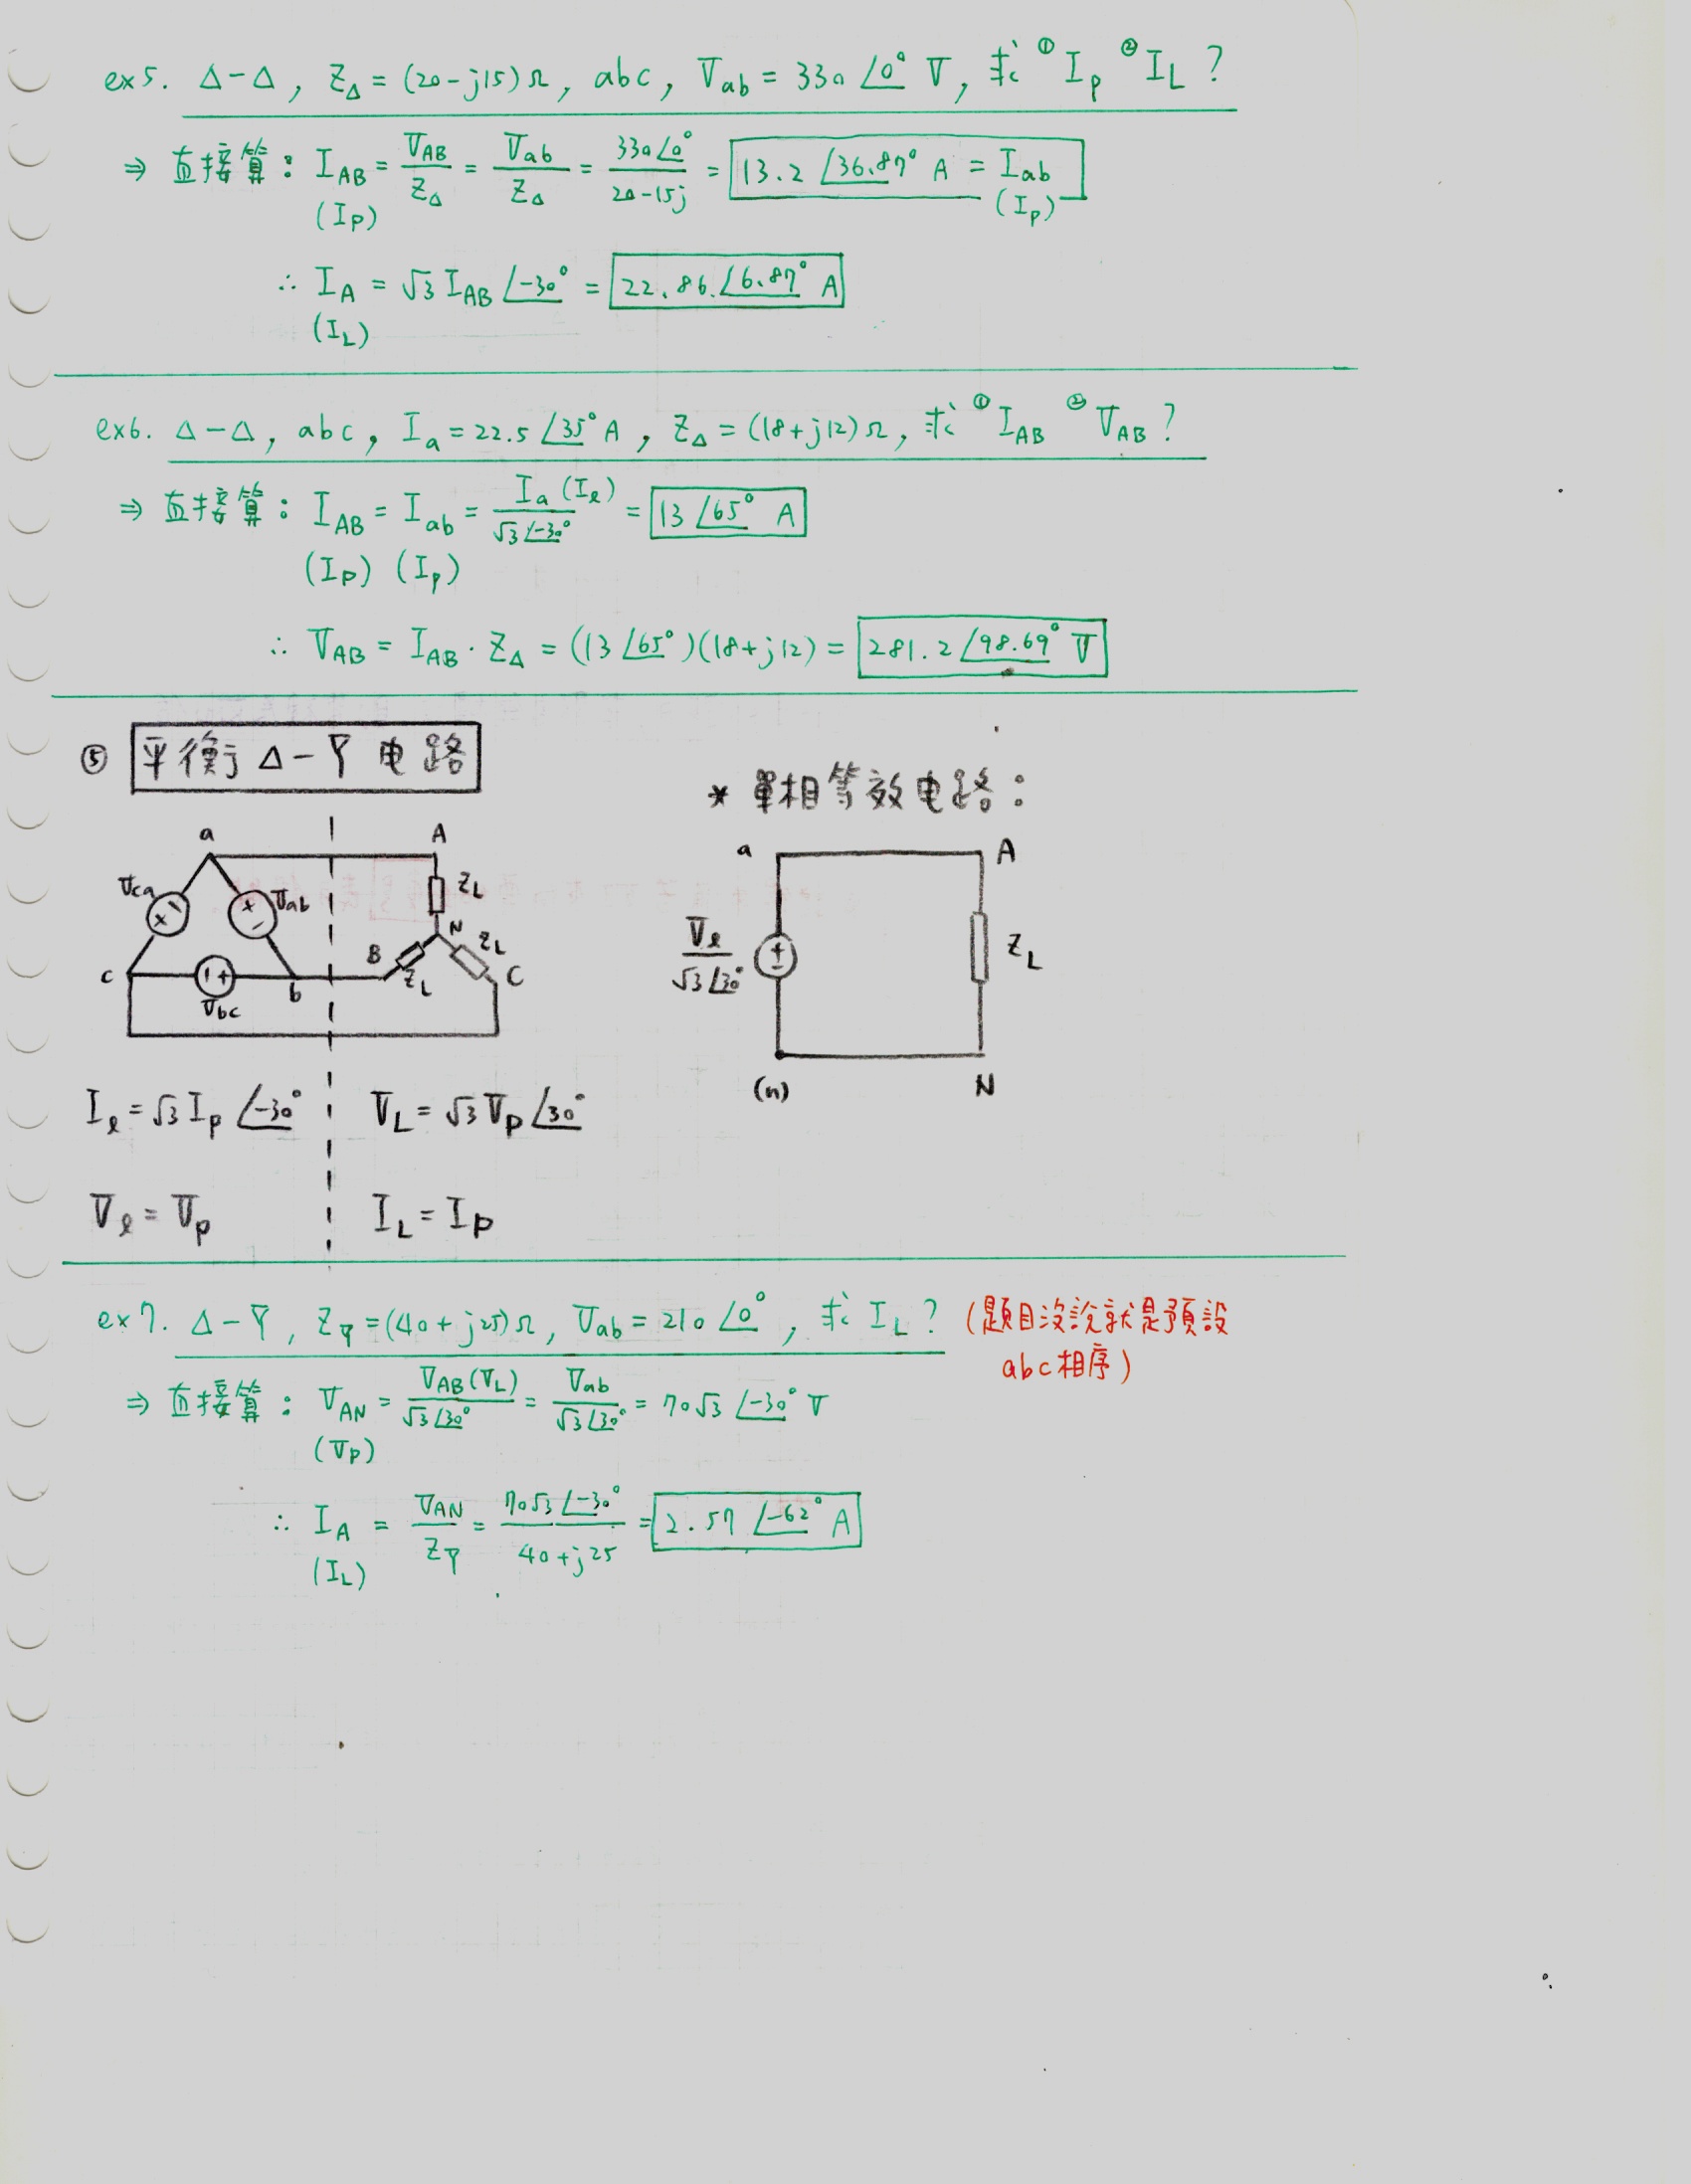 ex5. Δ-Δ, Z_Δ = (20-j15)Ω, abc, V_ab = 330∠0° V, 求 ① I_p ② I_L ?
⇒ 直接算: I_AB = V_AB/Z_Δ = V_ab/Z_Δ = 330∠0°/20-15j = 13.2∠36.87° A = I_ab
(I_P) (I_p)
∴ I_A = √3 I_AB ∠-30° = 22.86∠6.87° A
(I_L)
ex6. Δ-Δ, abc, I_a = 22.5∠35° A, Z_Δ = (18+j12)Ω, 求 ① I_AB ② V_AB ?
⇒ 直接算: I_AB = I_ab = I_a (I_ℓ)/√3∠-30° = 13∠65° A
(I_P) (I_p)
∴ V_AB = I_AB · Z_Δ = (13∠65°)(18+j12) = 281.2∠98.69° V
⑤ 平衡 Δ-Y 电路
* 單相等效电路:
a A
V_ca V_ab Z_L
N
B Z_L Z_L C
c V_bc b
a A
V_ℓ/√3∠30° Z_L
(n) N
I_ℓ = √3 I_p ∠-30° V_L = √3 V_P ∠30°
V_ℓ = V_p I_L = I_P
ex7. Δ-Y, Z_Y = (40+j25)Ω, V_ab = 210∠0°, 求 I_L ? (題目沒說就是預設
abc相序)
⇒ 直接算: V_AN = V_AB(V_L)/√3∠30° = V_ab/√3∠30° = 70√3∠-30° V
(V_P)
∴ I_A = V_AN/Z_Y = 70√3∠-30°/40+j25 = 2.57∠-62° A
(I_L)